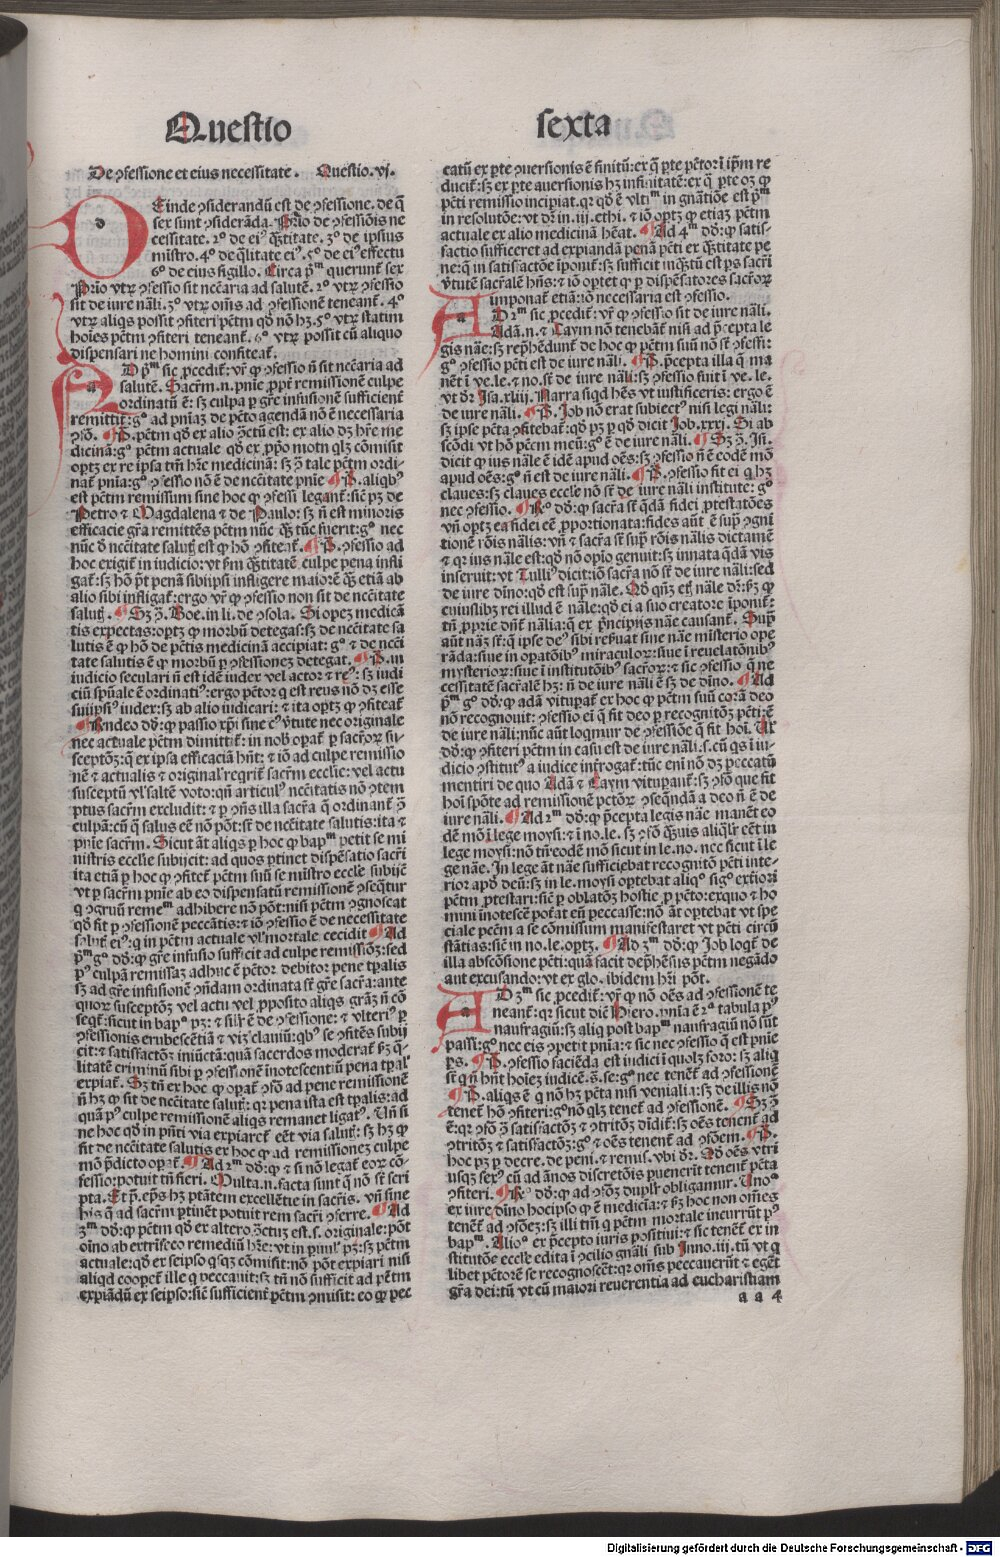 Questio sexta
De ꝯfessione et eius necessitate. Questio.vj.
Deinde ꝯsiderandū est de ꝯfessione. de q̄
sex sunt ꝯsiderāda. Prīo de ꝯfessiōis ne
cessitate. 2º de eiꝰ q̄titate. 3º de ipsius
mīstro. 4º de q̄litate eiꝰ. 5º de eiꝰ effectu
6º de eius sigillo. Circa pᵐ querunt̄ sex
Prīo vtꝝ ꝯfessio sit nec̄aria ad salutē. 2º vtꝝ ꝯfessio
sit de iure nāli. 3º vtꝝ om̄s ad ꝯfessionē teneant̄. 4º
vtꝝ aliqs possit ꝯfiteri pctm̄ qd̄ nō hꝫ. 5º vtꝝ statim
hoīes pctm̄ ꝯfiteri teneant̄. 6º vtꝝ possit cū aliquo
dispensari ne homini confiteat̄.
AD pᵐ sic ꝓcedit̄: vr̄ ꝙ ꝯfessio n̄ sit nec̄aria ad
salutē. Sacrm̄.n.pn̄ie ꝓpt̄ remissionē culpe
ordinatū ē: sꝫ culpa ꝑ gr̄e infusionē sufficient̄
remittit̄: gº ad pn̄iaꝫ de pctō agendā nō ē necessaria
ꝯfō. ¶ P. pctm̄ qd̄ ex alio ꝯctū est: ex alio dꝫ hr̄e me
dicinā: gº pctm̄ actuale qd̄ ex ꝓpo motu qlꝫ cōmisit
optꝫ ex re ipsa tm̄ hr̄e medicinā: sꝫ ꝯ̄ tale pctm̄ ordi-
nat̄ pn̄ia: gº ꝯfessio nō ē de nc̄citate pn̄ie ¶ P. aliqbꝰ
est pctm̄ remissum sine hoc ꝙ ꝯfessi legant̄: sic̄ pꝫ de
Petro ⁊ Magdalena ⁊ de Paulo: sꝫ n̄ est minoris
efficacie gr̄a remittēs pctm̄ nūc q̄ tūc fuerit: gº nec
nūc d̄ nc̄citate salut̄ est ꝙ hō ꝯfiteat̄. ¶ P. ꝯfessio ad
hoc exigit̄ in iudicio: vt ẜm q̄titatē culpe pena infli
gat̄: sꝫ hō pt̄ penā sibiipsi infligere maiorē q̄ etiā ab
alio sibi infligat̄: ergo vr̄ ꝙ ꝯfessio non sit de nc̄citate
salut̄. ¶ Sꝫ ꝯ̄. Boe. in li. de ꝯsola. Si opeꝫ medicā
tis expectas: optꝫ ꝙ morbū detegas: sꝫ de nc̄citate sa
lutis ē ꝙ hō de pctīs medicinā accipiat: gº ⁊ de nc̄ci
tate salutis ē ꝙ morbū ꝑ ꝯfessioneꝫ detegat. ¶ P. in
iudicio seculari n̄ est idē iudex vel actor ⁊ reꝰ: sꝫ iudi
ciū spūale ē ordinatiꝰ: ergo pctor q est reus nō dꝫ esse
suiipsiꝰ iudex: sꝫ ab alio iudicari: ⁊ ita optꝫ ꝙ ꝯfiteat̄
¶ Rn̄deo dd̄: ꝙ passio xp̄i sine cꝰ v̄tute nec originale
nec actuale pctm̄ dimittit̄: in nob̄ opat̄ ꝑ sacroꝝ su-
sceptōꝫ: q̄ ex ipsa efficaciā hn̄t: ⁊ iō ad culpe remissio
nē ⁊ actualis ⁊ originał reqrit̄ sacrm̄ ecclīe: vel actu
susceptū vł saltē voto: qn̄ articulꝰ nc̄citatis nō ꝯtem
ptus sacrm̄ excludit: ⁊ ꝑ ꝯn̄s illa sacr̄a q̄ ordinant̄ ꝯ̄
culpā: cū q̄ salus eē nō pōt: st̄ de nc̄citate salutis: ita ⁊
pn̄ie sacrm̄. Sicut āt aliqs ꝑ hoc ꝙ bapᵐ petit se mi
nistris ecclīe subijcit: ad quos ꝑtinet dispēsatio sacrī
ita etiā ꝑ hoc ꝙ ꝯfitet̄ pctm̄ suū se mīstro eccłe subijc̄
vt ꝑ sacrm̄ pn̄ie ab eo dispensatū remissionē ꝯseq̄tur
q ꝯgruū remeᵐ adhibere nō pōt: nisi pctm̄ ꝯgnoscat
qd̄ fit ꝑ ꝯfessionē peccātis: ⁊ iō ꝯfessio ē de necessitate
salut̄ eiꝰ: q in pctm̄ actuale vł mortale cecidit ¶ Ad
pᵐ gº dd̄: ꝙ gr̄e infusio sufficit ad culpe remissiōꝫ: sed
pꝰ culpā remissaꝫ adhuc ē pctōr debitor pene tp̄alis
sꝫ ad gr̄e infusionē ꝯn̄dam ordinata st̄ gr̄e sacr̄a: ante
quoꝝ susceptōꝫ vel actu vel ꝓposito aliqs gr̄aꝫ n̄ cō
seqt̄: sicut in bapº pꝫ: ⁊ siłr ē de ꝯfessione: ⁊ vlteriꝰ ꝑ
ꝯfessionis erubescētiā ⁊ viꝫ clauiū: qbꝰ se ꝯfitēs subij
cit: ⁊ satisfactōꝫ iniūctā: quā sacerdos moderat̄ ẜm q̄-
litatē criminū sibi ꝑ ꝯfessionē inotescentiū pena tp̄al̄
expiat̄. Sꝫ tn̄ ex hoc ꝙ opat̄ ꝯfō ad pene remissionē
n̄ hꝫ ꝙ sit de nc̄citate salut̄: qꝛ pena ista est tp̄alis: ad
quā pꝰ culpe remissionē aliqs remanet ligatꝰ. Vn̄ si
ne hoc qd̄ in pn̄ti via expiaret̄ eēt via salut̄: sꝫ hꝫ ꝙ
sit de nc̄citate salutis ex hoc ꝙ ad remissioneꝫ culpe
mō p̄dicto opat̄. ¶ Ad 2ᵐ dd̄: ꝙ ⁊ si nō legat̄ eoꝝ cō-
fessio: potuit tn̄ fieri. Multa.n. facta sunt q̄ nō st̄ scri
pta. Et p̄. ep̄s hꝫ ptātem excellētie in sacr̄is. vn̄ sine
his q̄ ad sacrm̄ ꝑtinēt potuit rem sacrī ꝯferre. ¶ Ad
3ᵐ dd̄: ꝙ pctm̄ qd̄ ex altero ꝯctuꝫ est.s.originale: pōt
oīno ab extrīseco remediū hr̄e: vt in puul̄ pꝫ: sꝫ pctm̄
actuale: qd̄ ex seipso qsqꝫ cōmisit: nō pōt expiari nisi
aliqd cooperet̄ ille q peccauit: sꝫ tn̄ nō sufficit ad pctm̄
expiādū ex seipso: sic̄ sufficient̄ pctm̄ ꝯmisit: eo ꝙ pec
catū ex pte ꝯuersionis ē finitū: ex q̄ pte pctōr ī ip̄m re
ducit̄: sꝫ ex pte auersionis hꝫ infinitatē: ex q̄ pte oꝫ ꝙ
pctī remissio incipiat. qꝛ qd̄ ē vltīᵐ in gn̄atiōe est pᵐ
in resolutōe: vt dr̄ in.iii.ethi. ⁊ iō optꝫ ꝙ etiaꝫ pctm̄
actuale ex alio medicinā hēat. ¶ Ad 4ᵐ dd̄: ꝙ satis-
factio sufficeret ad expiandā penā pctī ex q̄titate pe
ne: q̄ in satisfactōe īponit̄: sꝫ sufficit inq̄tū est ps sacrī
v̄tutē sacr̄alē hn̄s: ⁊ iō optet ꝙ ꝑ dispēsatores sacroꝝ
imponat̄ etiā: iō necessaria est ꝯfessio.
AD 2ᵐ sic ꝓcedit̄: vr̄ ꝙ ꝯfessio sit de iure nāli.
Adā.n.⁊ Caym nō tenebāt̄ nisi ad p̄cepta le
gis nāe: sꝫ rep̄hēdunt̄ de hoc ꝙ pctm̄ suū nō st̄ ꝯfessi:
gº ꝯfessio pctī est de iure nāli. ¶ P. p̄cepta illa q̄ ma
nēt ī ve.le.⁊ no.st̄ de iure nāli: sꝫ ꝯfessio fuit ī ve.le.
vt dr̄ Isa.xliii. Narra siqd hēs vt iustificeris: ergo ē
de iure nāli. ¶ P. Job nō erat subiectꝰ nisi legi nāli:
sꝫ ipse pctā ꝯfitebat̄: qd̄ pꝫ ꝑ qd̄ dicit Job.xxxi. Si ab
scōdi vt hō pctm̄ meū: gº ē de iure nāli. ¶ Sꝫ ꝯ̄. Isi.
dicit ꝙ ius nāle ē idē apud oēs: sꝫ ꝯfessio n̄ ē eodē mō
apud oēs: gº n̄ est de iure nāli. ¶ P. ꝯfessio fit ei q hꝫ
claues: sꝫ claues eccłe nō st̄ de iure nāli institute: gº
nec ꝯfessio. ¶ Rº dd̄: ꝙ sacr̄a st̄ q̄dā fidei ꝓtestatōes
vn̄ optꝫ ea fidei eē ꝓportionata: fides aūt ē sup̄ ꝯgni
tionē rōis nālis: vn̄ ⁊ sacr̄a st̄ sup̄ rōis nālis dictamē
⁊ qꝛ ius nāle est: qd̄ nō opīo genuit: sꝫ innata q̄dā vis
inseruit: vt Tulliꝰ dicit: iō sacr̄a nō st̄ de iure nāli: sed
de iure diō: qd̄ est sup̄ nāle. Qd̄ qn̄ꝫ etꝫ nāle dr̄: ẜm ꝙ
cuiuslibꝫ rei illud ē nāle: qd̄ ei a suo creatore īponit̄:
tn̄ ꝓprie dn̄t̄ nālia: q̄ ex p̄ncipijs nāe causant̄. Sup̄
aūt nāꝫ st̄: q̄ ipse deꝰ sibi reẜuat siue nāe mīsterio ope
rāda: siue in opatōibꝰ miraculoꝝ: siue ī reuelatōnibꝰ
mysterioꝝ: siue ī institutōibꝰ sacroꝝ: ⁊ sic ꝯfessio q̄ ne
cessitatē sacr̄alē hꝫ: n̄ de iure nāli ē sꝫ de dīno. ¶ Ad
pᵐ gº dd̄: ꝙ adā vitupat̄ ex hoc ꝙ pctm̄ suū corā deo
nō recognouit: ꝯfessio ei q̄ fit deo ꝑ recognitōꝫ pctī: ē
de iure nāli: nūc aūt loqmur de ꝯfessiōe q̄ fit hoī. Vł
dd̄: ꝙ ꝯfiteri pctm̄ in casu est de iure nāli.s.cū qs ī iu-
dicio ꝯstitutꝰ a iudice int̄rogat̄: tūc enī nō dꝫ peccatū
mentiri de quo Adā ⁊ Caym vitupant̄: sꝫ ꝯfō que fit
hoī spōte ad remissionē pctōꝝ ꝯseqn̄da a deo n̄ ē de
iure nāli. ¶ Ad 2ᵐ dd̄: ꝙ p̄cepta legis nāe manēt eo
dē mō ī lege moysi: ⁊ ī no.le. sꝫ ꝯfō q̄uis aliqlr̄ eēt in
lege moysi: nō tn̄ eodē mō sicut in le.no. nec sicut ī le
ge nāe. In lege āt nāe sufficiebat recognitō pctī inte-
rioꝝ apd̄ deū: sꝫ in le.moysi optebat aliqº sigº ext̄iori
pctm̄ ꝓtestari: sic̄ ꝑ oblatōꝫ hostie ꝓ pctō: exquo ⁊ ho
mini inotescē potat eū peccasse: nō āt optebat vt spe
ciale pctm̄ a se cōmissum manifestaret vt pctī circū
stātias: sic̄ in no.le.optꝫ. ¶ Ad 3ᵐ dd̄: ꝙ Job loqt̄ de
illa abscōsione pctī: quā facit dep̄hēsus pctm̄ negādo
aut excusando: vt ex glo. ibidem hr̄i pōt.
AD 3ᵐ sic ꝓcedit̄: vr̄ ꝙ nō oēs ad ꝯfessionē te
neant̄: qꝛ sicut dic̄ Hiero. pn̄ia ē 2ᵃ tabula pꝰ
naufragiū: sꝫ aliq post bapᵐ naufragiū nō sūt
passi: gº nec eis ꝯpetit pn̄ia: ⁊ sic nec ꝯfessio q̄ est pn̄ie
ps. ¶ P. ꝯfessio faciēda est iudici ī quolꝫ foro: sꝫ aliq
st̄ q n̄ hn̄t hoīeꝫ iudicē.s̄.se: gº nec tenēt̄ ad ꝯfessionē
¶ P. aliqs ē q nō hꝫ pctā nisi veniali i: sꝫ de illis nō
tenet̄ hō ꝯfiteri: gº nō qlꝫ tenet̄ ad ꝯfessionē. ¶ Sꝫ ꝯ̄
ē: qꝛ ꝯfō ꝯ̄ satisfactōꝫ ⁊ ꝯtritōꝫ diīdit̄: sꝫ oēs tenent̄ ad
ꝯtritōꝫ ⁊ satisfactōꝫ: gº ⁊ oēs tenent̄ ad ꝯfōem. ¶ P.
hoc pꝫ ꝑ decre. de peni. ⁊ remis. vbi dr̄. Qd̄ oēs vtri
usqꝫ sexꝰ cū ad ānos discretōis puenerīt tenent̄ pctā
ꝯfiteri. ¶ Rº dd̄: ꝙ ad ꝯfōꝫ duplr̄ obligamur. Vnoº
ex iure dīno hocipso ꝙ ē medicīa: ⁊ ẜm hoc non om̄es
tenēt̄ ad ꝯfōeꝫ: sꝫ illi tm̄ q pctm̄ mortale incurrūt pꝰ
bapᵐ. Alioº ex p̄cepto iuris positiui: ⁊ sic tenēt̄ ex in
stitutōe eccłe edita ī ꝯcilio gn̄ali sub Inno.iii. tū vt q
libet pctōrē se recognoscēt: qꝛ om̄s peccauerūt ⁊ egēt
gr̄a dei: tū vt cū maiori reuerentia ad eucharistiam
a a 4
Digitalisierung gefördert durch die Deutsche Forschungsgemeinschaft - DFG